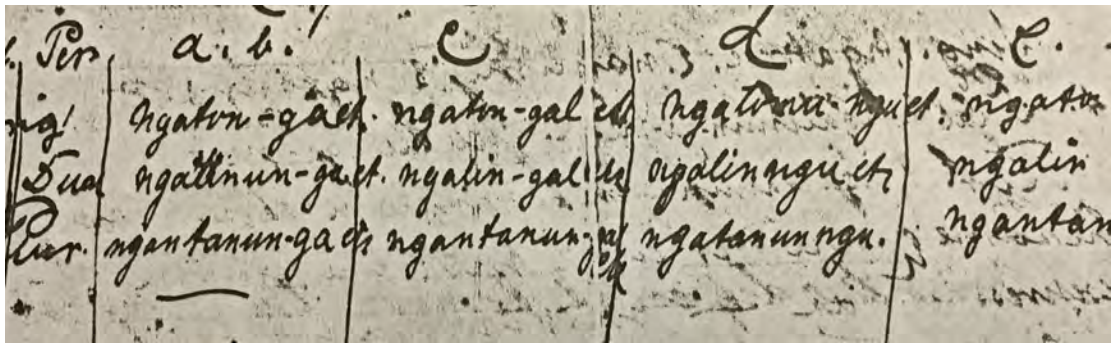 Per a. b. c d e.
ngaton-ga etc. ngaton-gal etc ngatonu-ngu et. ngato
Dua ngalinun-ga et. ngalin-gal etc ngalinngu etc ngalin
Plur. ngantanun-ga etc ngantanun- ngatanunngu. ngantan